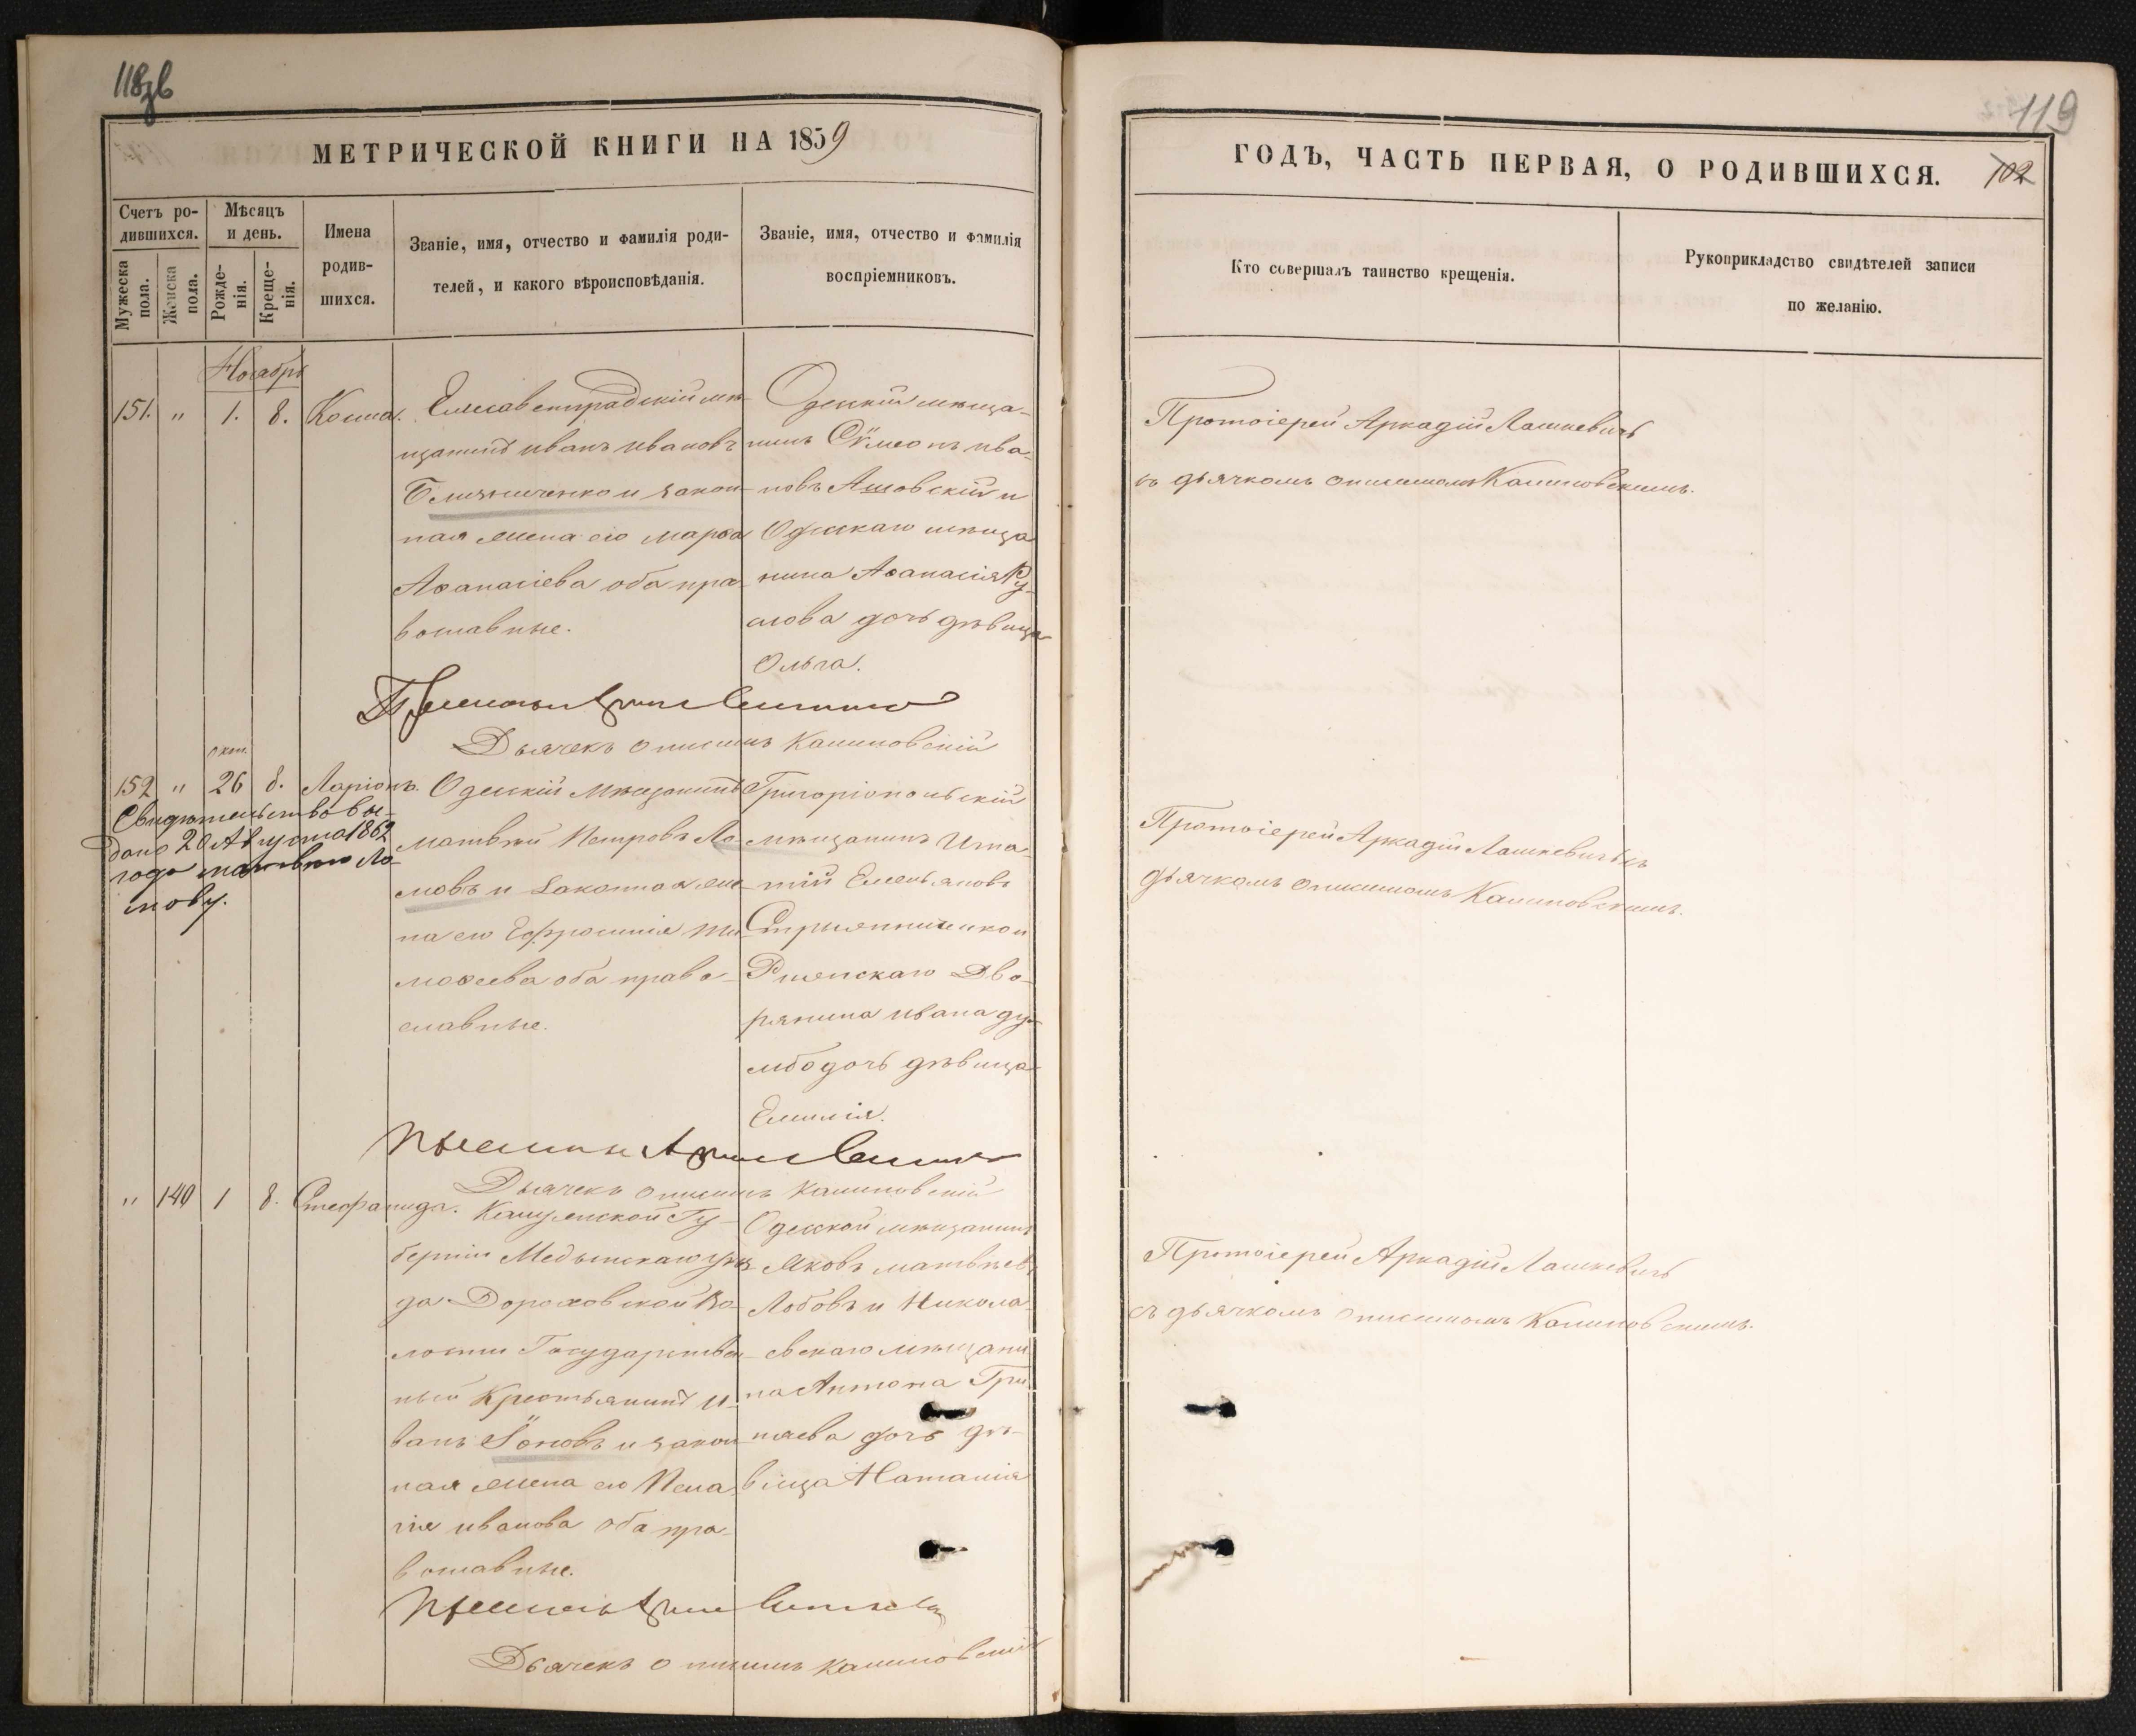 118зв
МЕТРИЧЕСКОЙ КНИГИ НА 1859
Счетъ ро-
дившихся.
Мѣсяцъ
и день.
Мужеска
пола.
Женска
пола.
Рожде-
нія.
Креще-
нія.
Имена
родив-
шихся.
Званіе, имя, отчество и фамилія роди-
телей, и какого вѣроисповѣданія.
Званіе, имя, отчество и фамилія
воспріемниковъ.
Ноябрь
151. " 1. 8. Косма.
Елисаветградскій мѣ-
щанинъ Иванъ Ивановъ
и закон-
ная жена его Марѳа
Аѳанасіева оба пра-
вославные.
Одесскій мѣща-
нинъ Сѵмеонъ Ива-
новъ Ашовскій и
Одесскаго мѣща
нина Аѳанасія Ру-
сова дочь дѣвица
Ольга.
Дьячекъ Онисимъ Калиновскій
окт.
152 " 26 8. Ларіонъ.
Свидѣтельство вы-
дано 20 Августа 1862
года Матвѣю Ло-
мову.
Одесскій Мѣщанинъ
Матвѣй Петровъ Ло-
мовъ и законная же-
на его Ефросинія Ти-
моѳеева оба право-
славные.
Григоріопольскій
мѣщанинъ Игна-
тій Емельяновъ
и
дво-
рянина Ивана Ду-
мбо дочь дѣвица
Емилія.
Дьячекъ Онисимъ Калиновскій
" 140 1 8. Стефанида.
Калужской Гу-
берніи Медынскаго уѣз-
да Дороховской Во-
лости Государствен-
ный Крестьянинъ И-
ванъ Іоновъ и закон-
ная жена его Пела-
гія Иванова оба пра-
вославные.
Одесской мѣщанинъ
Яковъ Матвѣевъ
Лобовъ и Никола-
евскаго мѣщани
на Антона Гри
няева дочь дѣ-
віица Наталія
Дьячекъ Онисимъ Калиновскій
119
ГОДЪ, ЧАСТЬ ПЕРВАЯ, О РОДИВШИХСЯ. 102
Кто совершалъ таинство крещенія.
Рукоприкладство свидѣтелей записи
по желанію.
Протоіерей Аркадій Лашкевичъ
съ дьячкомъ Онисимомъ Калиновскимъ.
Протоіерей Аркадій Лашкевичъ съ
дьячкомъ Онисимомъ Калиновскимъ.
Протоіерей Аркадій Лашкевичъ
съ дьячкомъ Онисимомъ Калиновскимъ.